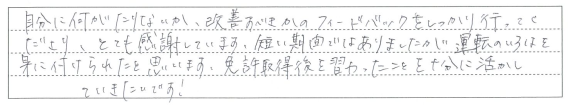 自分に何がたりないか、改善すべきかのフィードバックをしっかり行ってく
だより、とても感謝しています。短い期間ではありましたが運転のいろはを
身に付けられたと思います。免許取得後を習ったことを十分に活かし
ていきたいです!